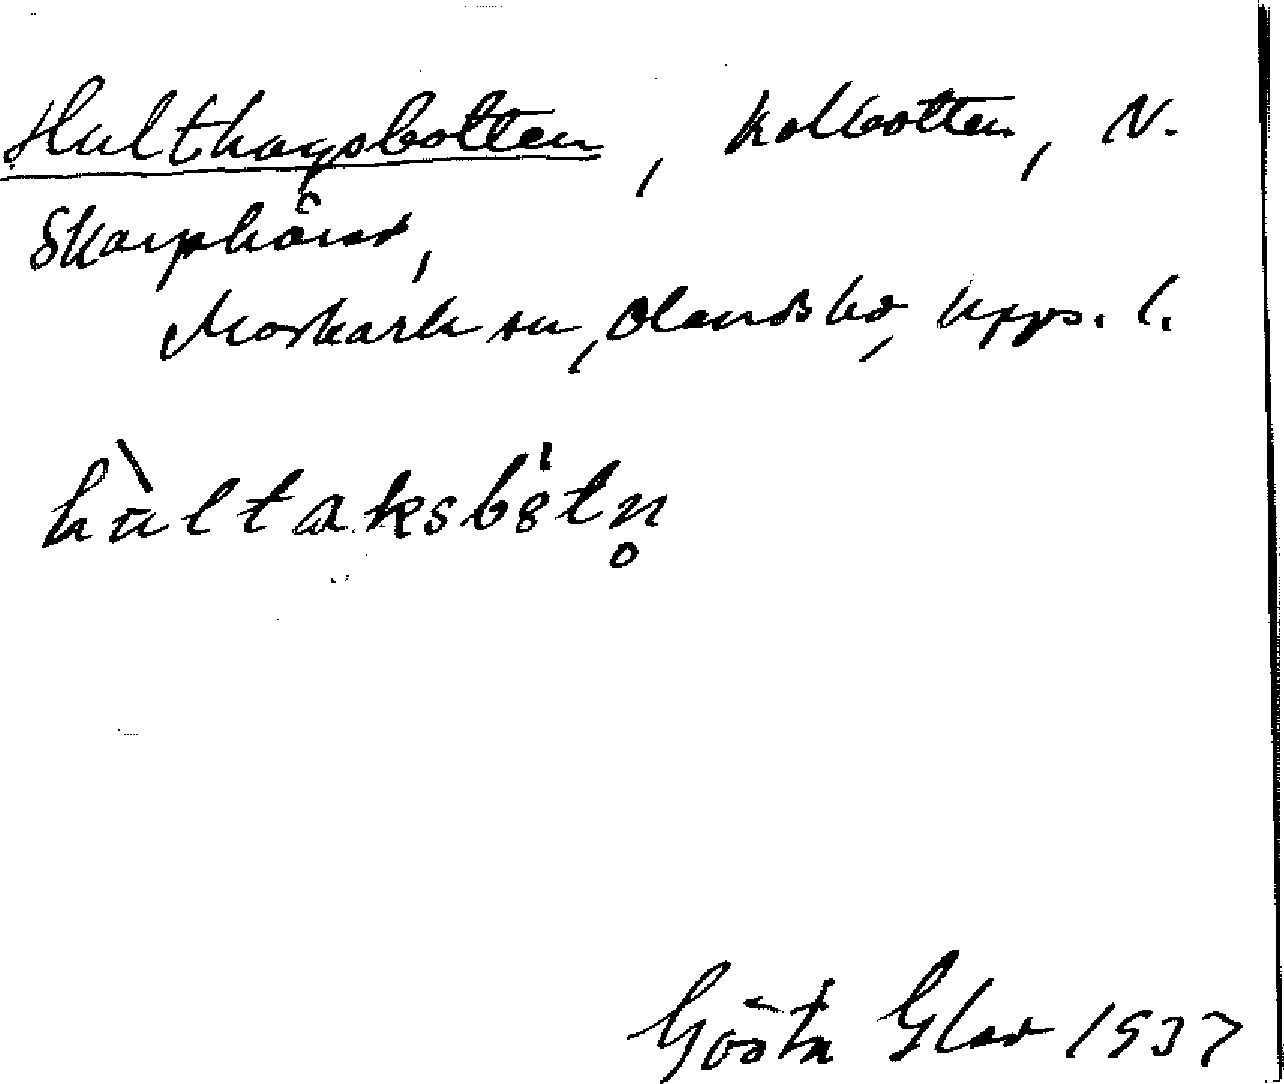 Hulthagsbotten, kolbotten, N.
Skarphäråd,
Morkarla sn, Olands hd, Upps. l.
hùltaksbǻtn̥
Gösta Glad 1937